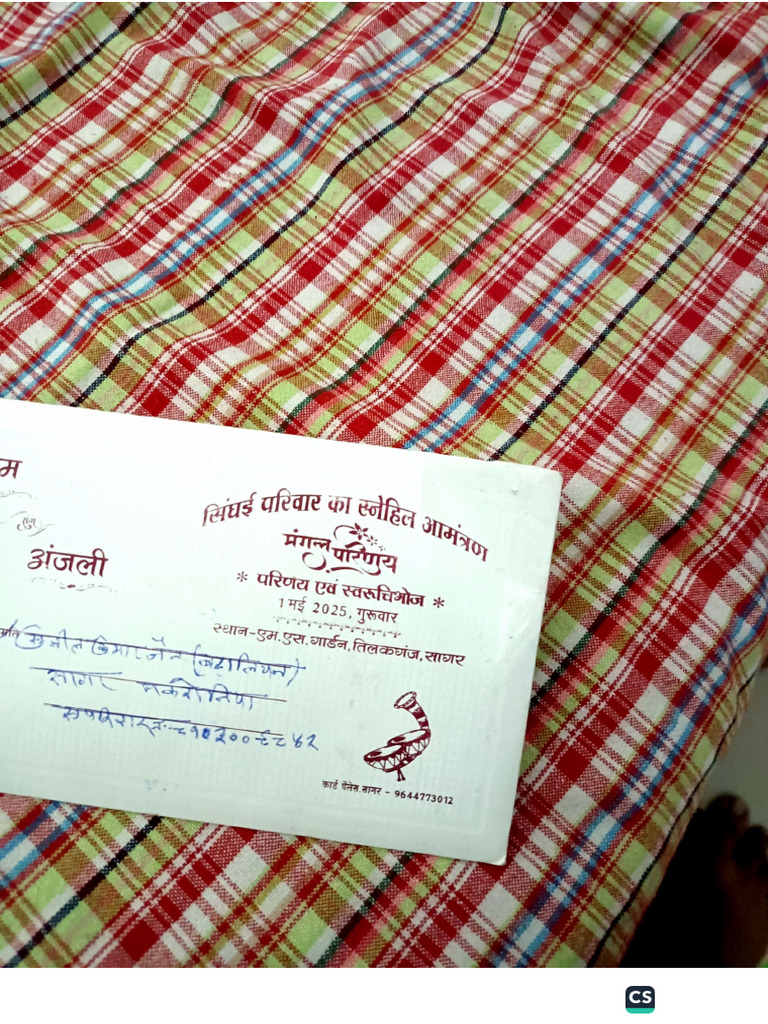 म
एवं
अंजली
सिंघई परिवार का स्नेहिल आमंत्रण
मंगल परिणय
* परिणय एवं स्वरूचिभोज *
1 मई 2025, गुरूवार
स्थान-एम.एस. गार्डन, तिलकगंज, सागर
जैन
सागर मकरोनिया
कार्ड पैलेस, सागर - 9644773012
CS